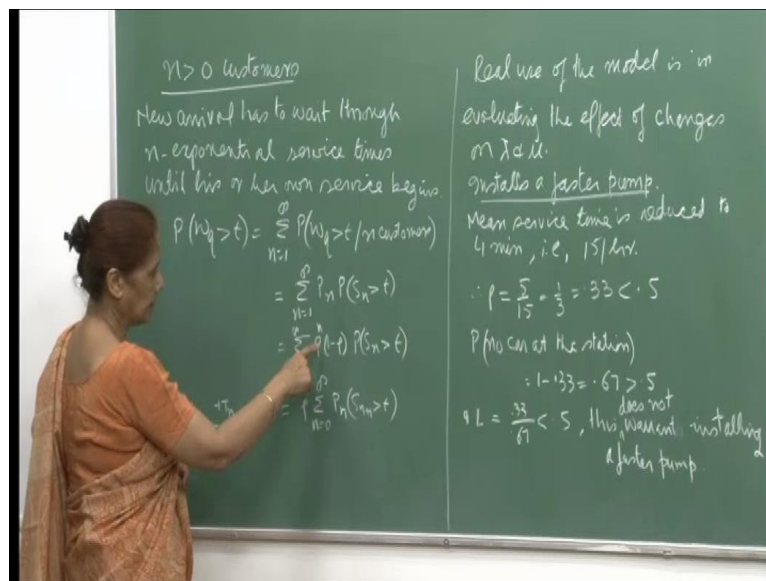 n>0 customers
New arrival has to wait through
n-exponential service times
until his or her own service begins.
P(Wq>t) = ∞ Σ n=1 P(Wq>t/n customers)
= ∞ Σ n=1 Pn P(Sn>t)
= Σ ρ^n (1-ρ) P(Sn>t)
= ρ ∞ Σ n=0 Pn (Sn+1>t)
Real use of the model is in
evaluating the effect of changes
in λ & μ.
installs a faster pump.
Mean service time is reduced to
4 min, i.e, 15/hr.
∴ ρ = 5/15 = 1/3 = .33 < .5
P(no car at the station)
= 1-.33 = .67 > .5
L = .33/.67 < .5, this does not warrant installing
a faster pump.